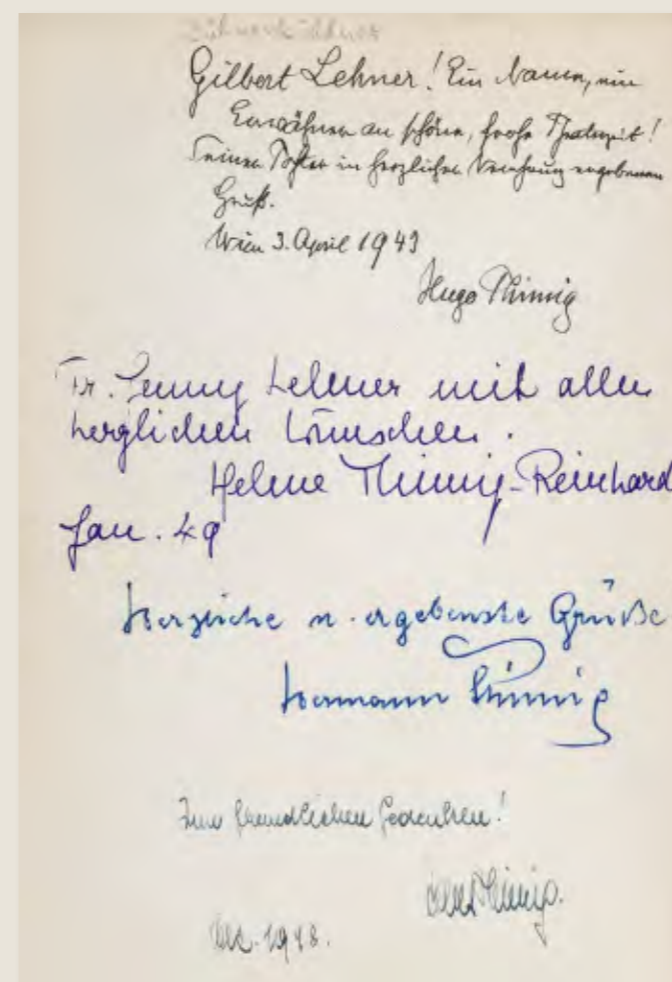 Gilbert Lehner! Ein Name, ein
Erwähnen an schöne, frohe Theaterzeit!
Seiner Tochter in herzlicher Verehrung ergebenen
Gruß.
Wien 3. April 1943
Hugo Thimig
Fr. Jenny Lehner mit allen
herzlichen Wünschen.
Helene Thimig-Reinhard
Jan. 49
Herzliche u. ergebenste Grüße
Hermann Thimig
Zum freundlichen Gedenken!
Hans Thimig.
Dez. 1948.